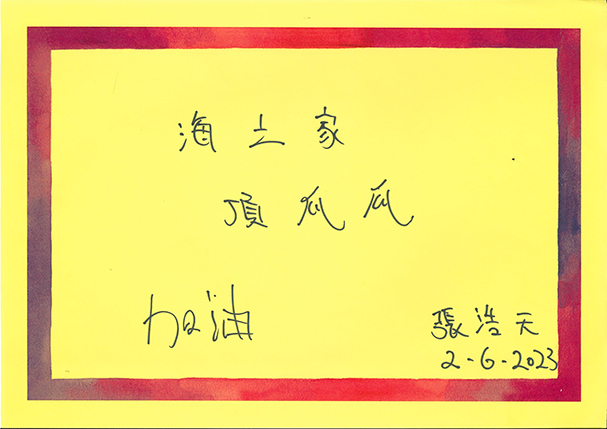 海土家
頂瓜瓜
加油
張浩天
2-6-2023